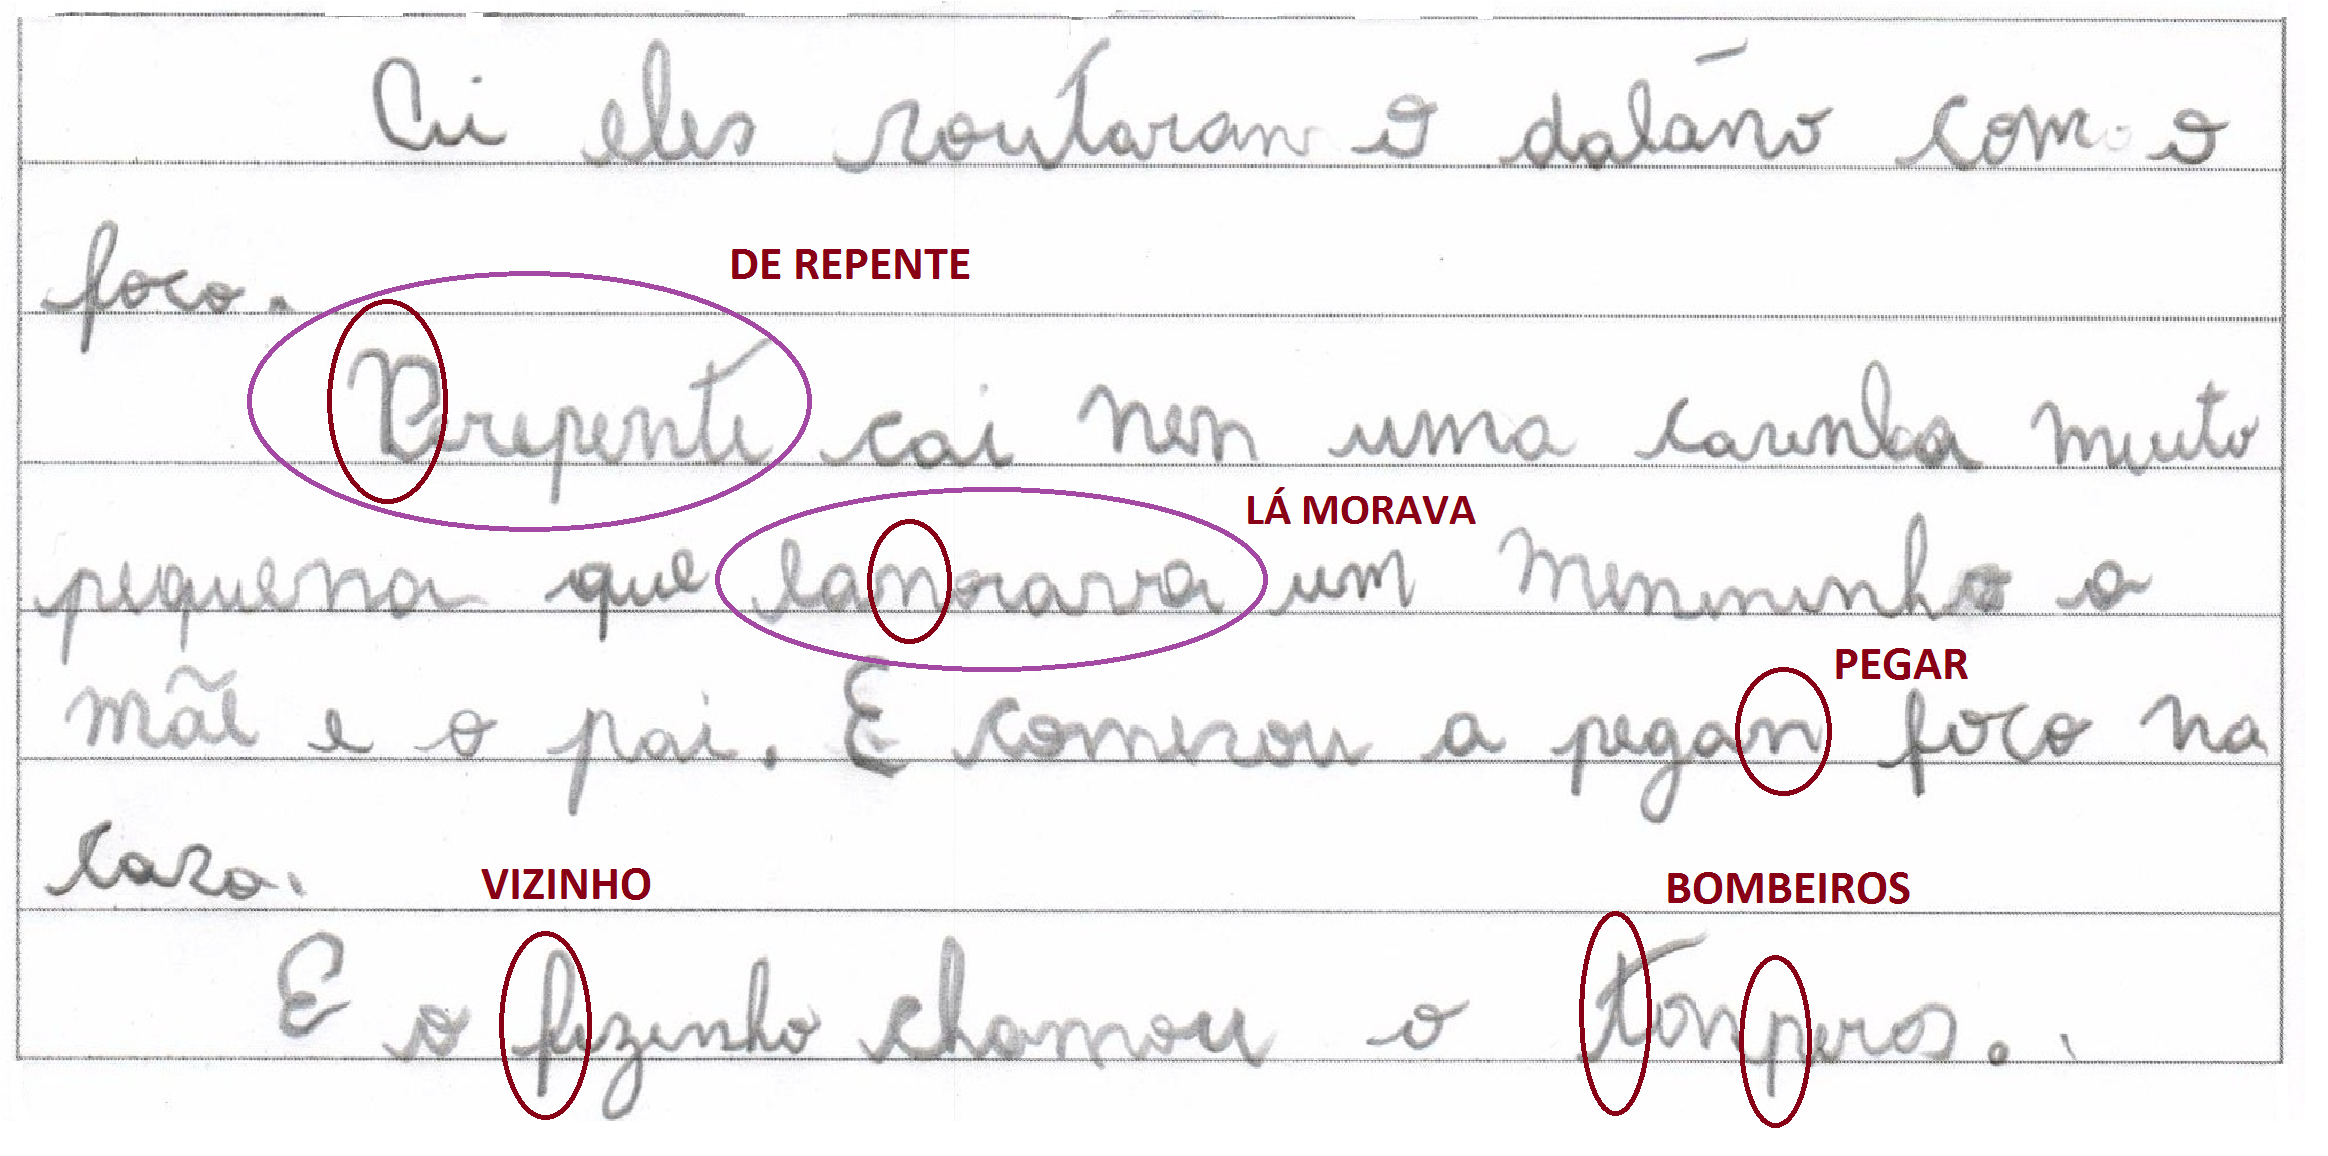 Ci eles soutaran o dalãno com o
foco.
DE REPENTE
Derepente cai nen uma casinha muito
LÁ MORAVA
pequena que lanorava um menininho a
PEGAR
mãe e o pai. E comesou a pegan foco na
casa.
VIZINHO
BOMBEIROS
E o fizinho chamou o tonperos.